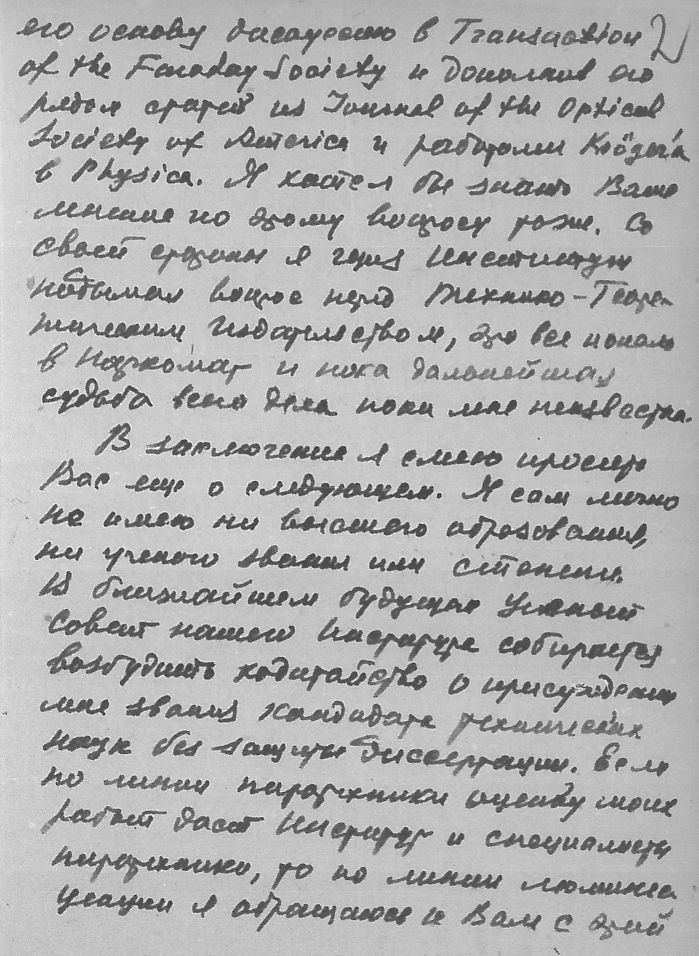 его основу дискуссию в Transaction 2
of the Faraday Society и дополнив его
рядом статей из Journal of the Optical
Society of America и работами Kröger'а
в Physica. Я хотел бы знать Ваше
мнение по этому вопросу тоже. Со
своей стороны я через Институт
поднимал вопрос перед Технико-Теоре-
тическим Издательством, это все попало
в Наркомат и пока дальнейшая
судьба всего дела пока мне неизвестна.
В заключение я смею просить
Вас еще о следующем. Я сам лично
не имею ни высшего образования,
ни ученого звания или степени.
В ближайшем будущем Ученый
Совет нашего Института собирается
возбудить ходатайство о присуждении
мне звания кандидата технических
наук без защиты диссертации. Если
по линии пиротехники оценку моих
работ даст Институт и специалисты
пиротехники, то по линии люминес
ценции я обращаюсь к Вам с этой